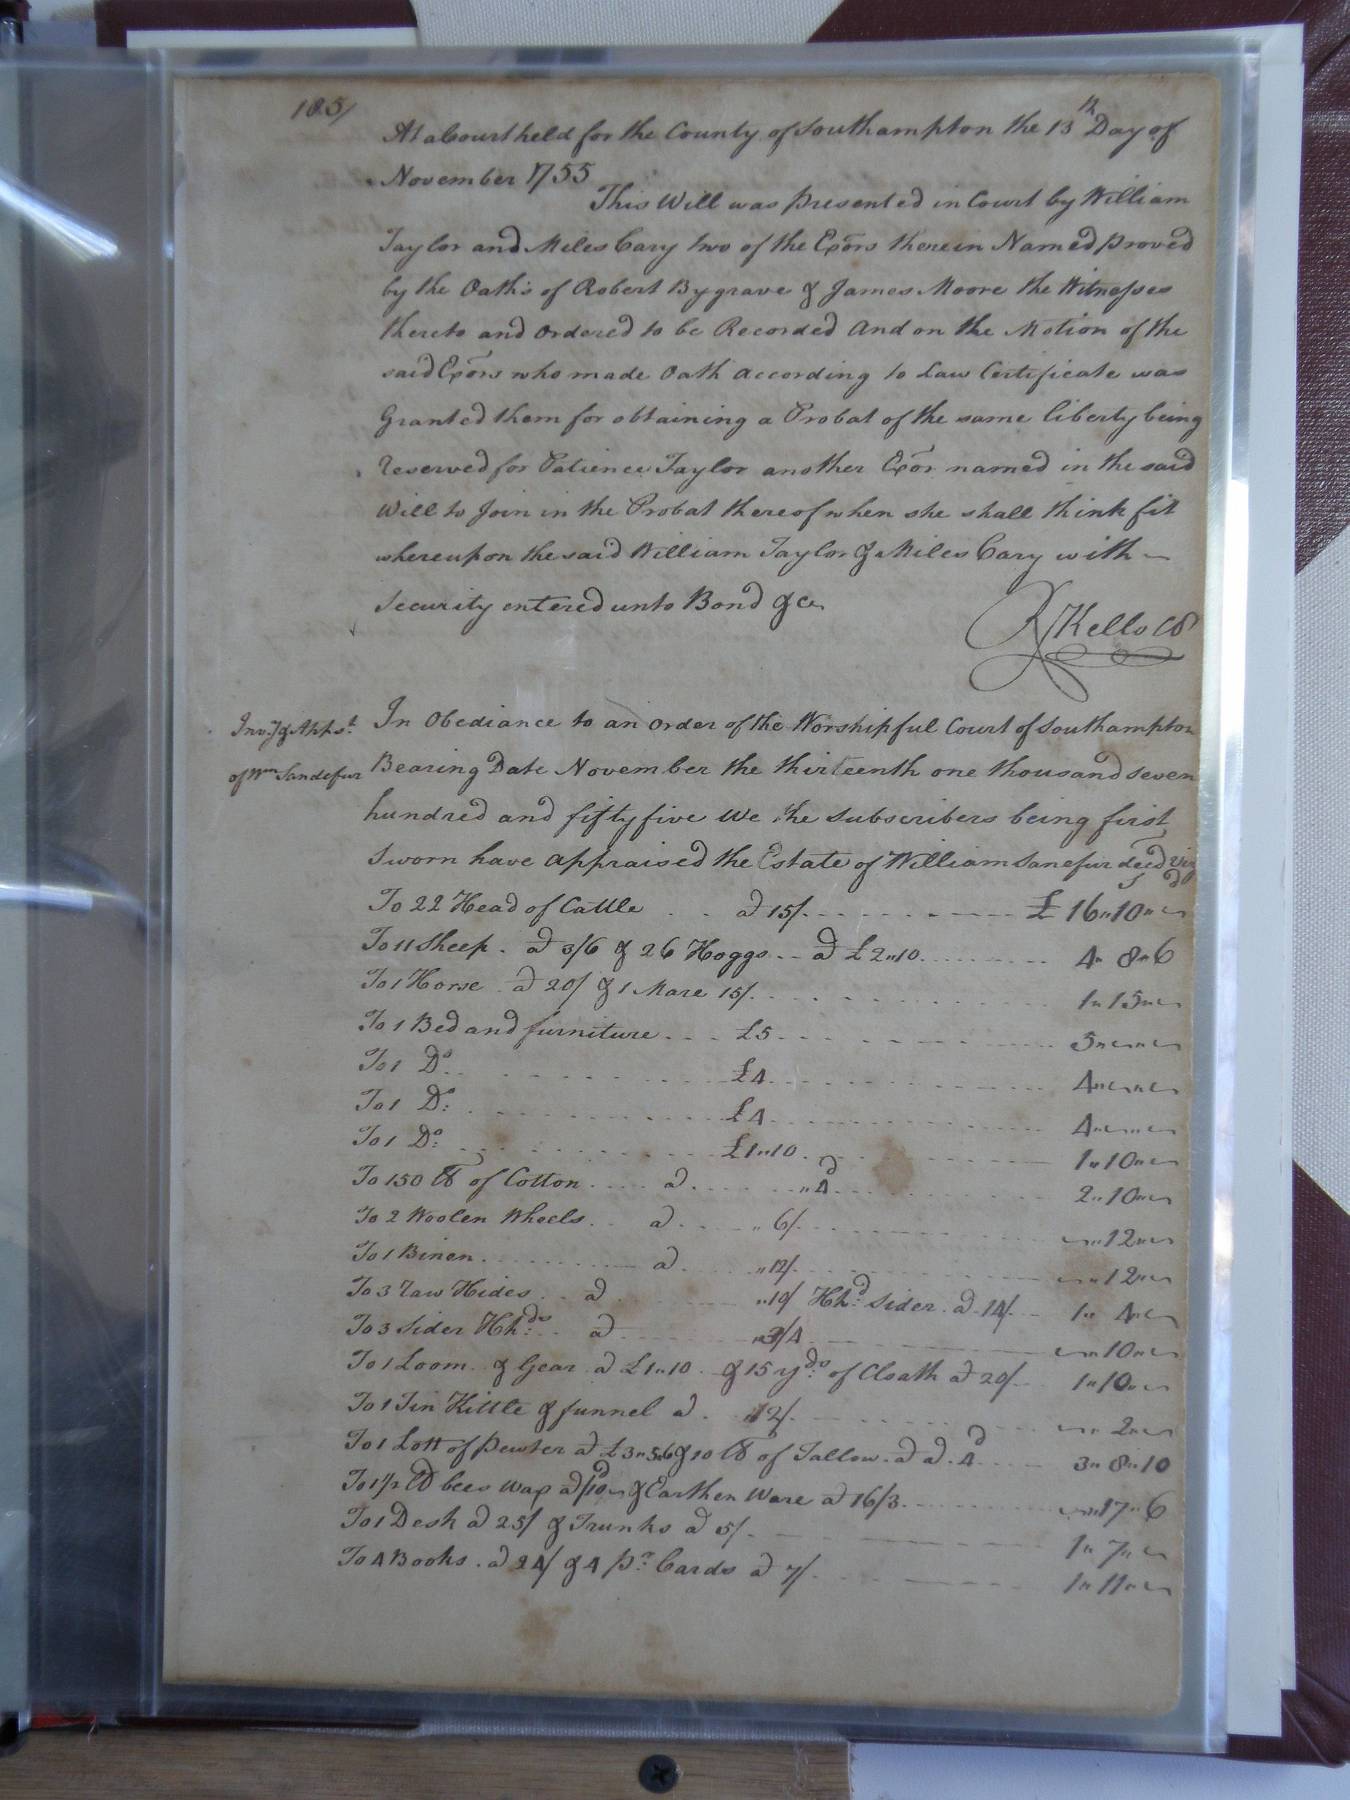 185/
At a Court held for the County of Southampton the 13th Day of
November 1755
This Will was presented in Court by William
Taylor and Miles Cary two of the Exors therein Named proved
by the Oaths of Robert Bygrave & James Moore the Witnesses
thereto and Ordered to be Recorded And on the Motion of the
said Exors who made Oath according to Law Certificate was
Granted them for obtaining a Probat of the same liberty being
reserved for Patience Taylor another Exor named in the said
Will to Join in the Probat thereof when she shall think fit
whereupon the said William Taylor & Miles Cary with
Security entered unto Bond &c
R Kello CC
Invy & Apprst
of Wm Sandefur
In Obediance to an order of the Worshipful Court of Southampton
Bearing Date November the thirteenth one thousand seven
hundred and fifty five We the Subscribers being first
Sworn have appraised the Estate of William Sanefur decd Viz
S D
To 22 Head of Cattle a 15/ £ 16"10"
To 11 Sheep a 3/6 & 26 Hoggs a £2"10 4"8"6
To 1 Horse a 20/ & 1 Mare 15/ 1"15"
To 1 Bed and furniture £5 5"
To 1 Do £4 4"
To 1 Do: £4 4"
To 1 Do: £1"10 1"10"
To 150 lb of Cotton a "4d 2"10"
To 2 Woolen Wheels a "6/ "12"
To 1 Linen a "12/ "12"
To 3 raw Hides a "10/ Hhd: Sider a 14/ 1"4"
To 3 Sider Hhds: a "3/4 "10"
To 1 Loom & Gear a £1"10 & 15 yds: of Cloath a 20/ 1"10"
To 1 Tin Kittle & funnel a 2/ "2"
To 1 Lott of Pewter a £3"5"6 & 10 lb of Tallow a a 4d 3"8"10
To 1½ lb bees Wax a & Earthen Ware a 16/3 "17"6
To 1 Desk a 25/ & Trunks a 5/ 1"7"
To 4 Books a 24/ & 4 pr: Cards a 7/ 1"11"